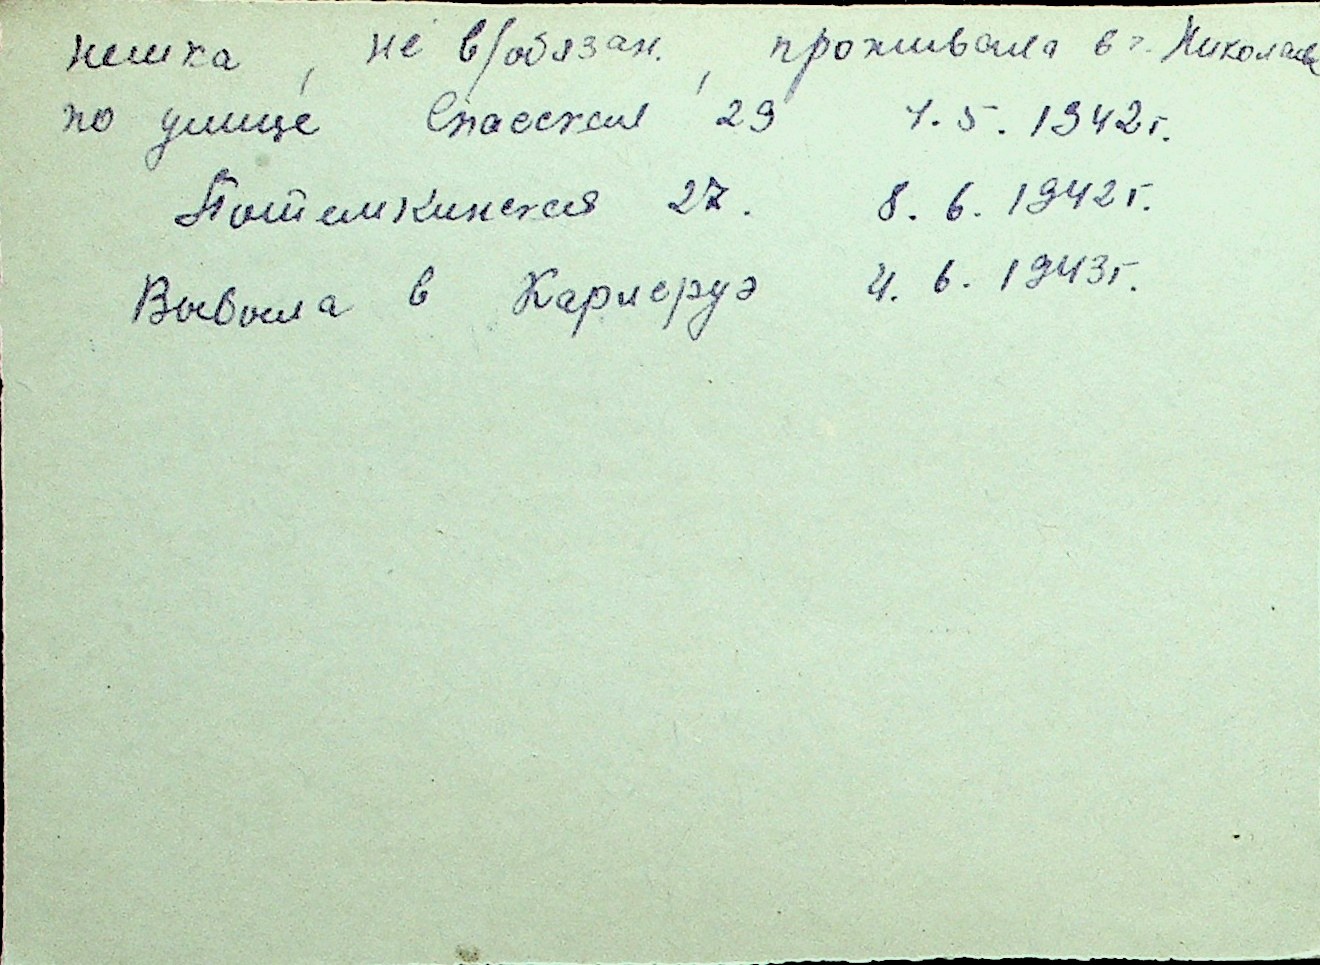 немка, не в/обязан., проживала в г. Николаев
по улице Спасская 29 1.5.1942г.
Потемкинская 27. 8.6.1942г.
Выбыла в Карлсруэ 4.6.1943г.